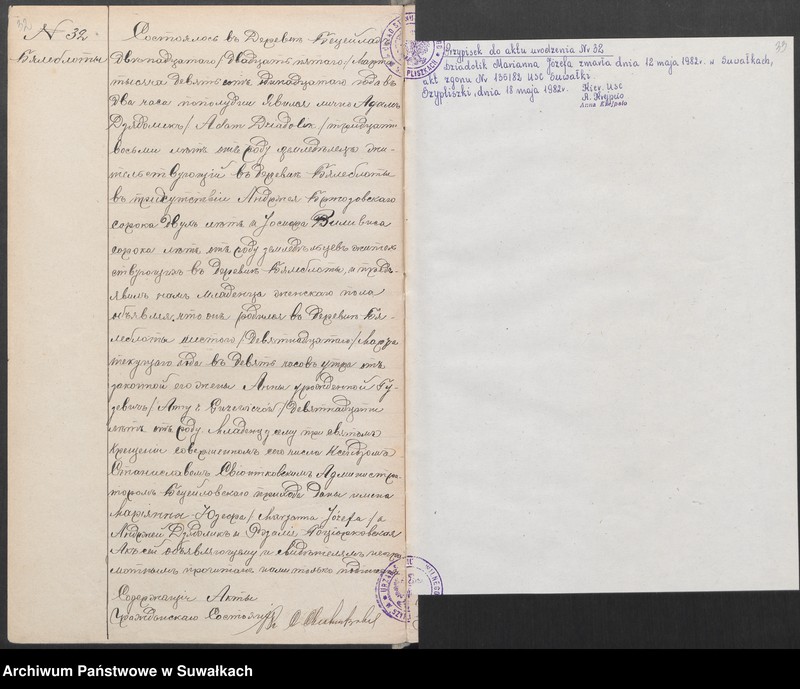 № 32
Бялеблоты
Состоялось въ деревнѣ Бецейлы
двѣнадцатаго /двадцать пятаго/ Марта
тысяча девятьсотъ одинадцатаго года въ
два часа пополудни. Явился лично Адамъ
Дзядоликъ /Adam Dziadolik/ тридцати
восьми лѣтъ отъ роду земледѣлецъ жи-
тельствующій въ деревнѣ Бялеблоты
въ присутствіи Андржея
сорока двухъ лѣтъ и Іосифа
сорока лѣтъ отъ роду земледѣльцевъ жительствующихъ
въ деревнѣ Бялеблоты, и предъ-
явилъ намъ младенца женскаго пола
объявляя, что онъ родился въ деревнѣ Бя-
леблоты шестого /девятнадцатаго/ Марта
текущаго года въ девять часовъ утра отъ
законной его жены Анны урожденной Гу-
девичъ /Anny z / девятнадцати
лѣтъ отъ роду. Младенцу сему при святомъ
крещеніи совершенномъ сего числа Ксендзомъ
Станиславомъ Администра-
торомъ Бецейловскаго прихода даны имена
Маріянна Юзефа /Marjanna Józefa/ а
Андржей Дзядоликъ и Розалія
Актъ сей объявляющему и свидѣтелямъ негра-
мотнымъ прочитанъ нами только подписанъ
Содержащій Акты
Гражданскаго Состоянія
Przypisek do aktu urodzenia Nr 32
Dziadolik Marianna Józefa zmarła dnia 12 maja 1982r. w Suwałkach,
akt zgonu Nr 156/82 USC Suwałki
Szypliszki, dnia 18 maja 1982r. Kier. USC
A. Krejpćo
Archiwum Państwowe w Suwałkach